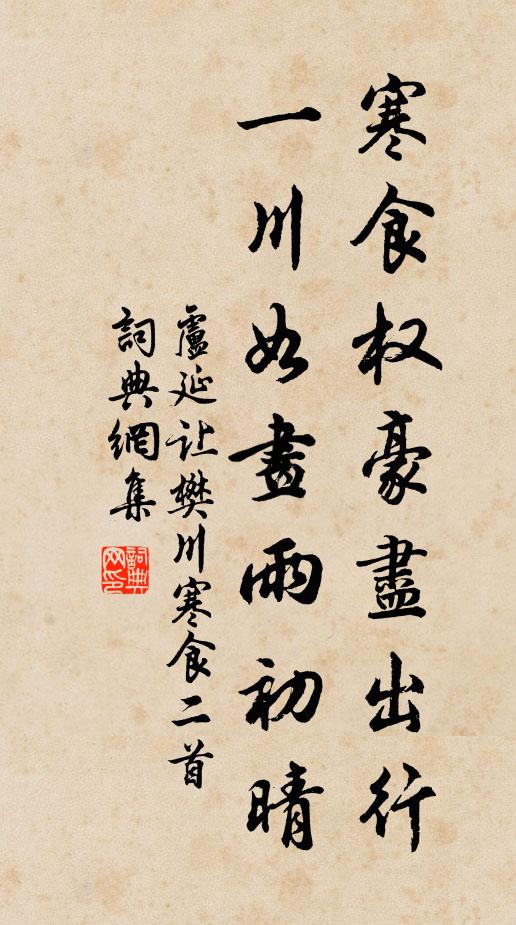 寒食权豪盡出行
一川如畫雨初晴
盧延让樊川寒食二首
詞典網集
詞典网印